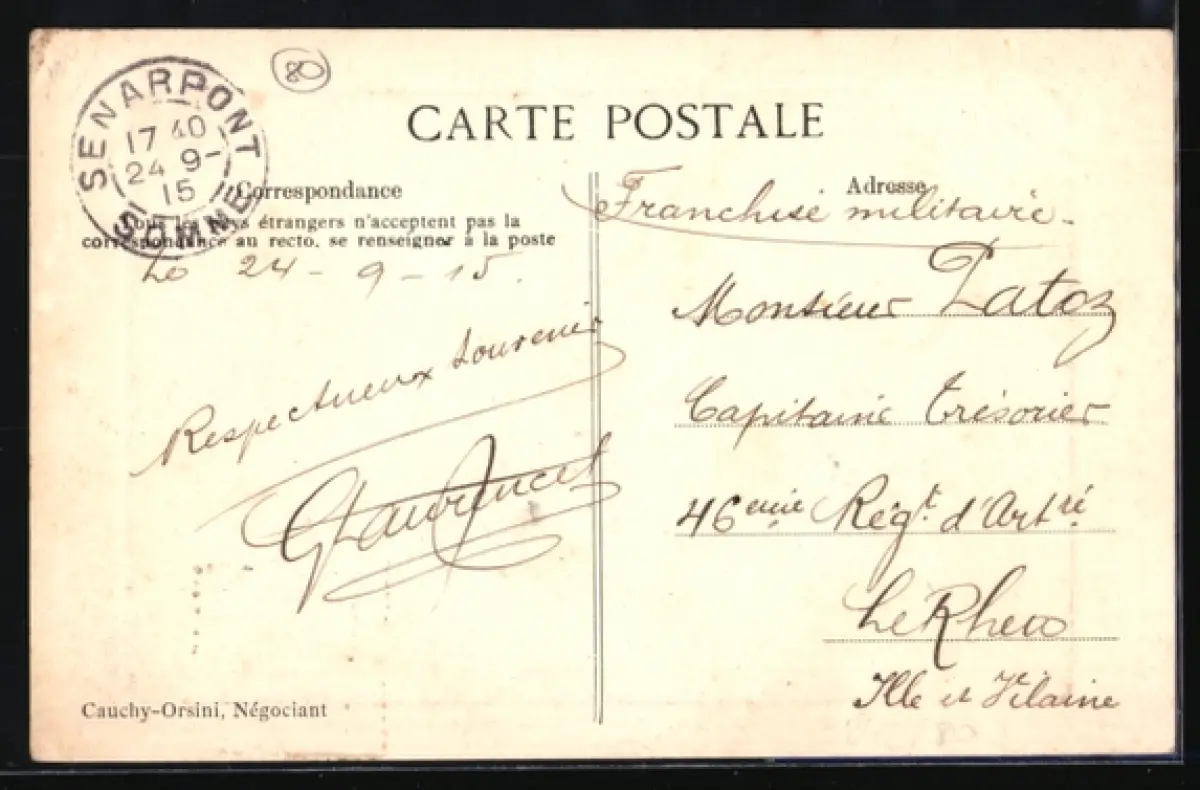 80
SENARPONT
17 40
24 9 -
15
SOMME
CARTE POSTALE
Correspondance
Tous les pays étrangers n'acceptent pas la
correspondance au recto. se renseigner à la poste
Adresse
Franchise militaire -
Le 24 - 9 - 15.
Respectueux souvenir
Monsieur Patoz
Capitaine trésorier
46eme Régt d'Artie
Le Rheu
Ille et Vilaine
Cauchy-Orsini, Négociant